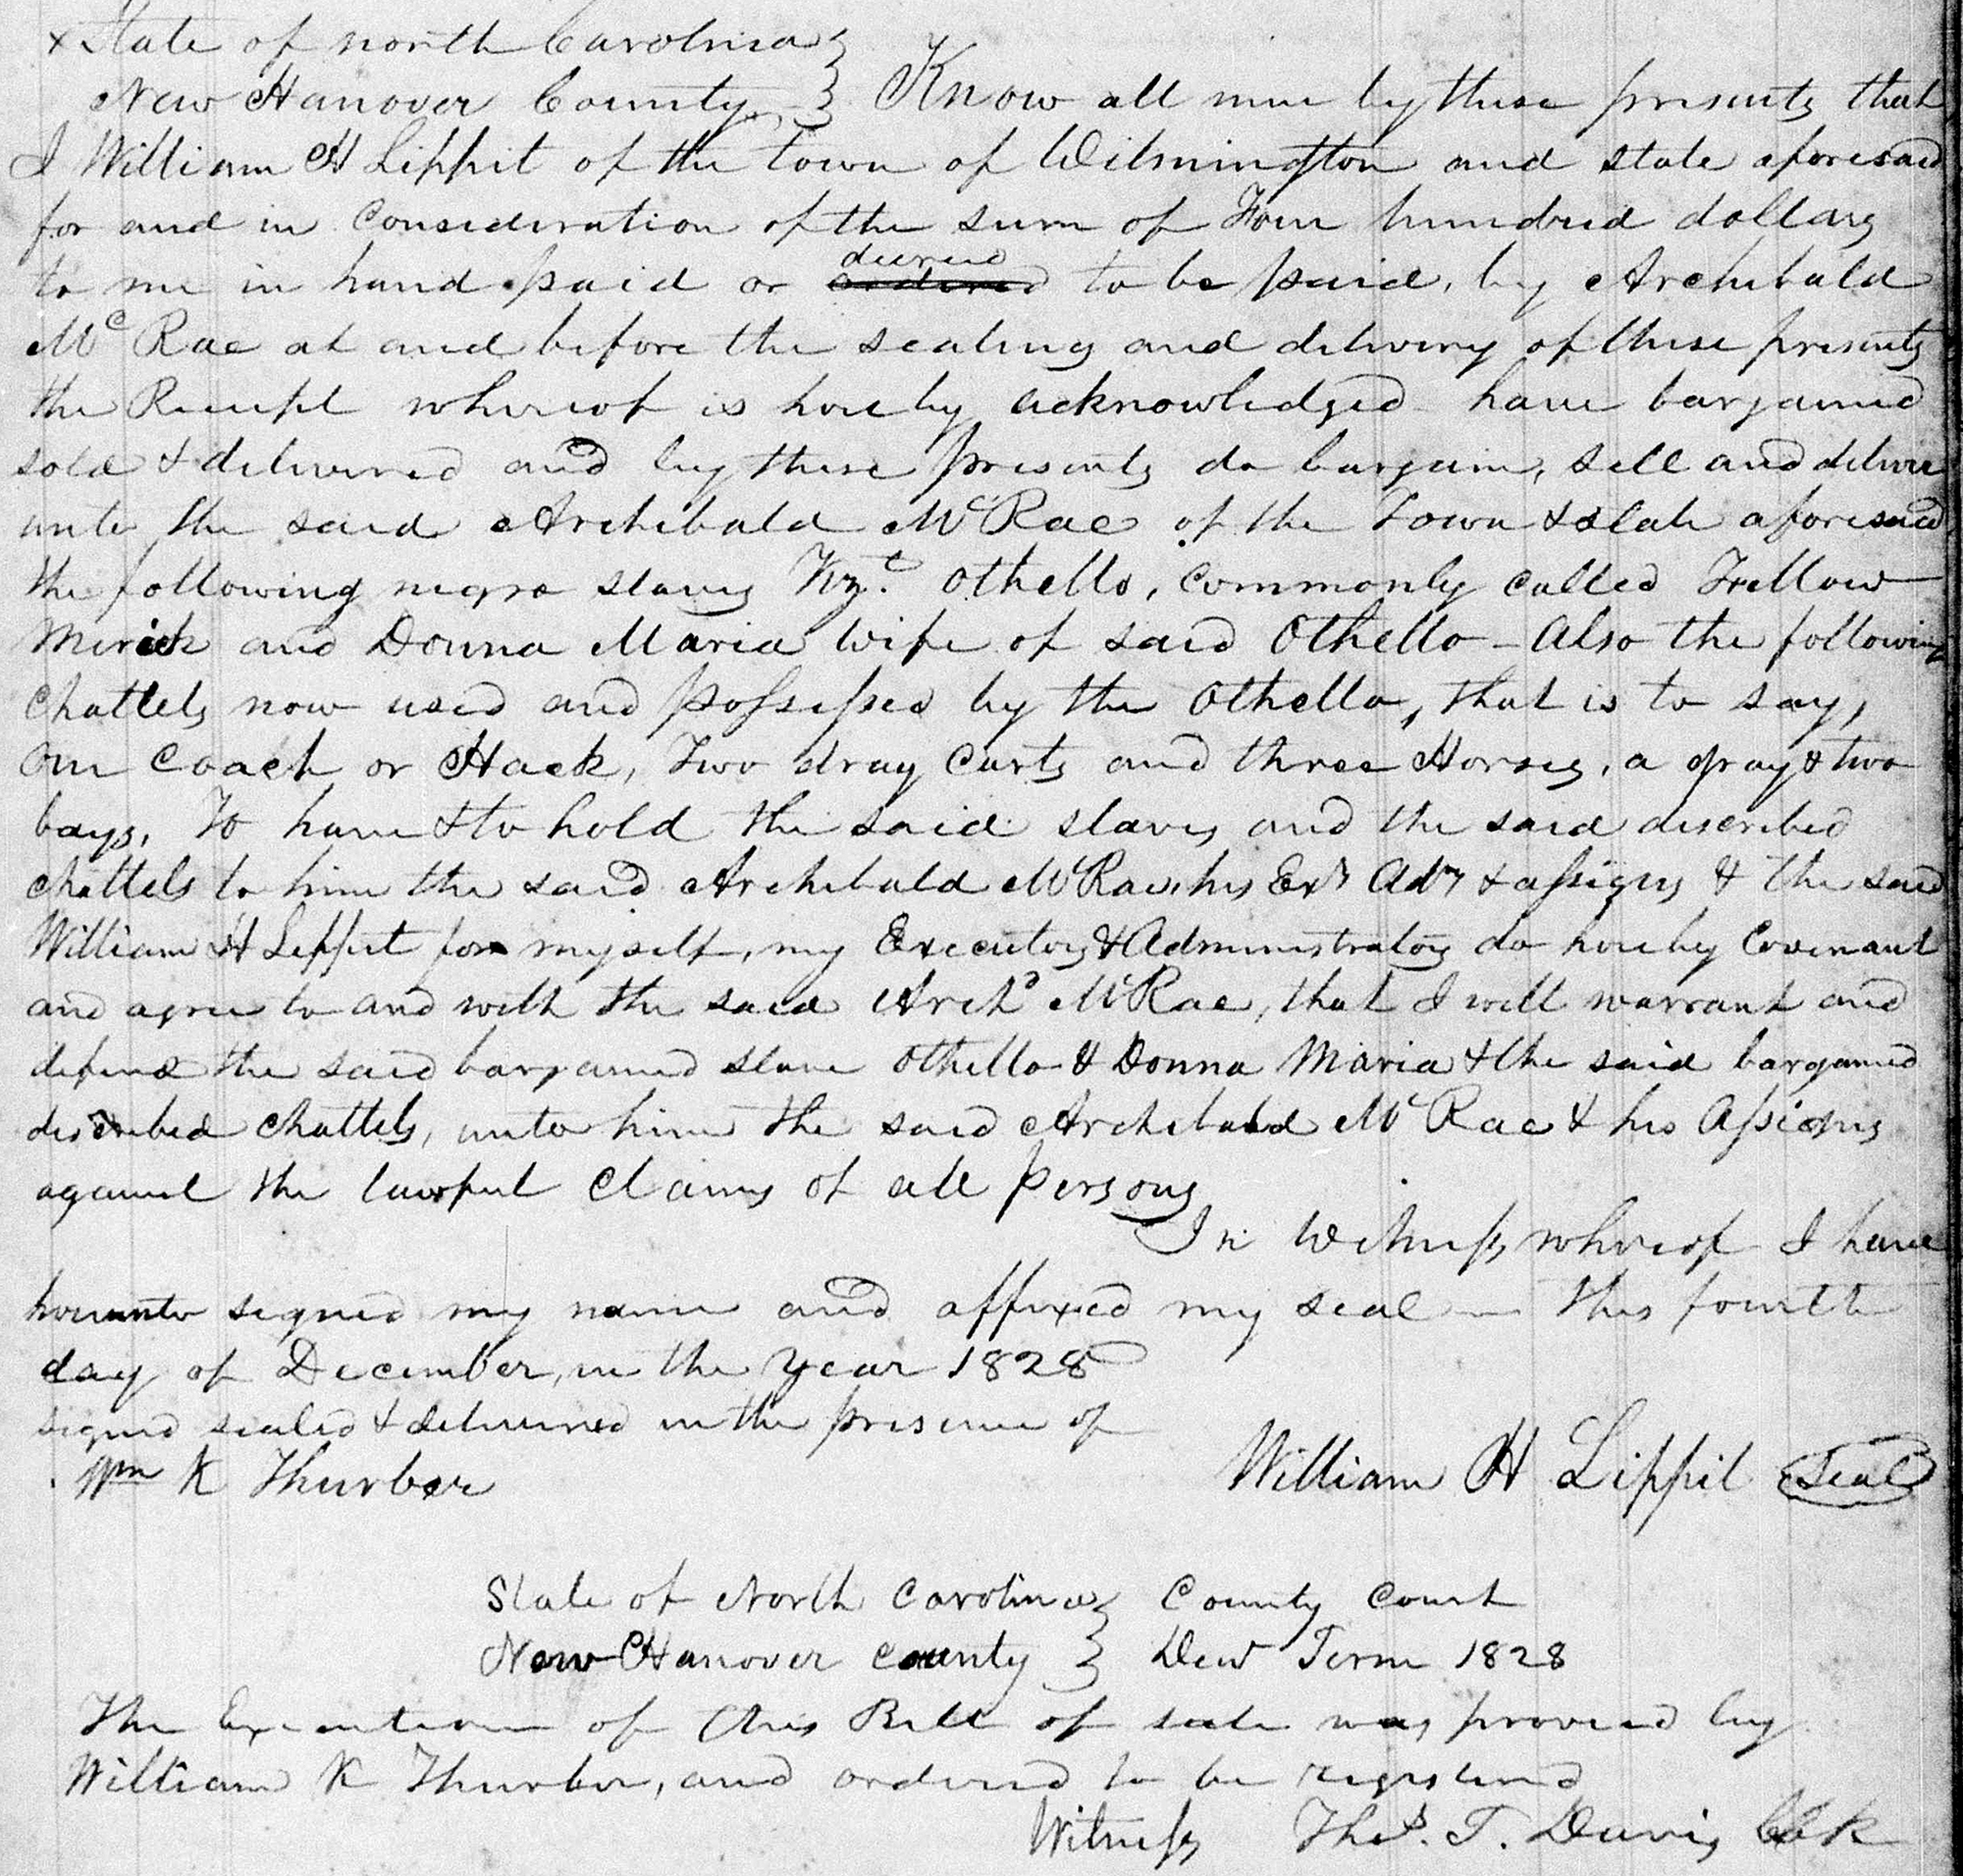 x State of North Carolina }
New Hanover County } Know all men by these presents that
I William H Lippit of the town of Wilmington and state aforesaid
for and in Consideration of the sum of Four hundred dollars
to me in hand paid or decreed ordered to be paid, by Archibald
McRae at and before the sealing and delivery of these presents
the Receipt whereof is hereby acknowledged have bargained
sold & delivered and by these presents do bargain, sell and deliver
unto the said Archibald McRae of the Town & state aforesaid
the following negro slaves Othello, Commonly Called
Merick and Donna Maria wife of said Othello - Also the following
Chattels now used and possessed by the Othello, that is to say,
one Coach or Hack, Two dray Carts and three Horses, a gray & two
bays, To have & to hold the said slaves and the said described
chattels to him the said Archibald McRae, his Exrs Admrs & assigns & the said
William H Lippit for myself, my Executors & Administrators do hereby Covenant
and agree to and with the said Archd McRae, that I will warrant and
defend the said bargained slave Othello & Donna Maria & the said bargained
described chattels, unto him the said Archibald McRae & his Assigns
against the lawful claims of all persons
In Witness whereof I have
hereunto signed my name and affixed my seal this fourth
day of December, in the year 1828
signed sealed & delivered in the presence of
Wm K Thurber William H Lippit Seal
State of North Carolina } County Court
New Hanover County } Term 1828
The Execution of this Bill of sale was proved by
William K Thurber, and ordered to be registered
Witness Thos. T. Davis Clk